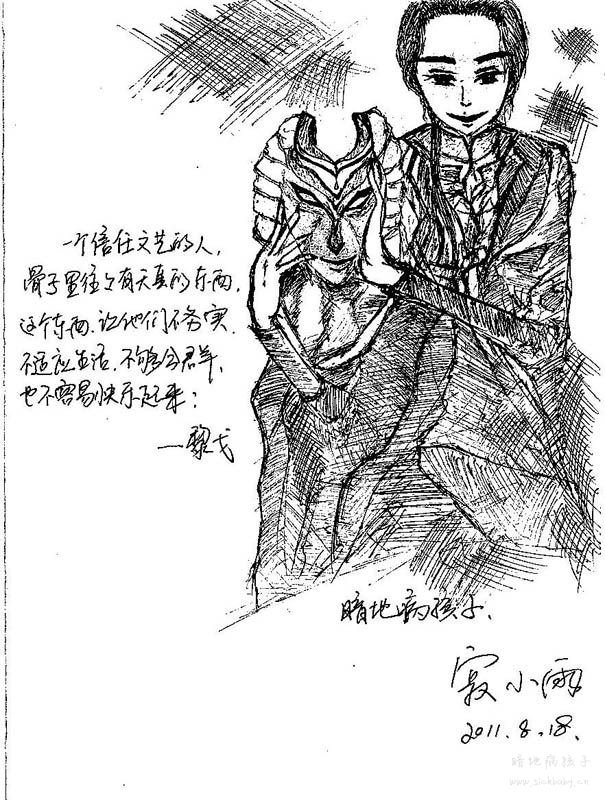 一个信任文艺的人，
骨子里往往有天真的东西，
这个东西，让他们不务实，
不适应生活，不够合群，
也不容易快乐起来；
—黎戈
暗地病孩子、
寂小雨
2011.8.18.
暗地病孩子
www.sickbaby.cn